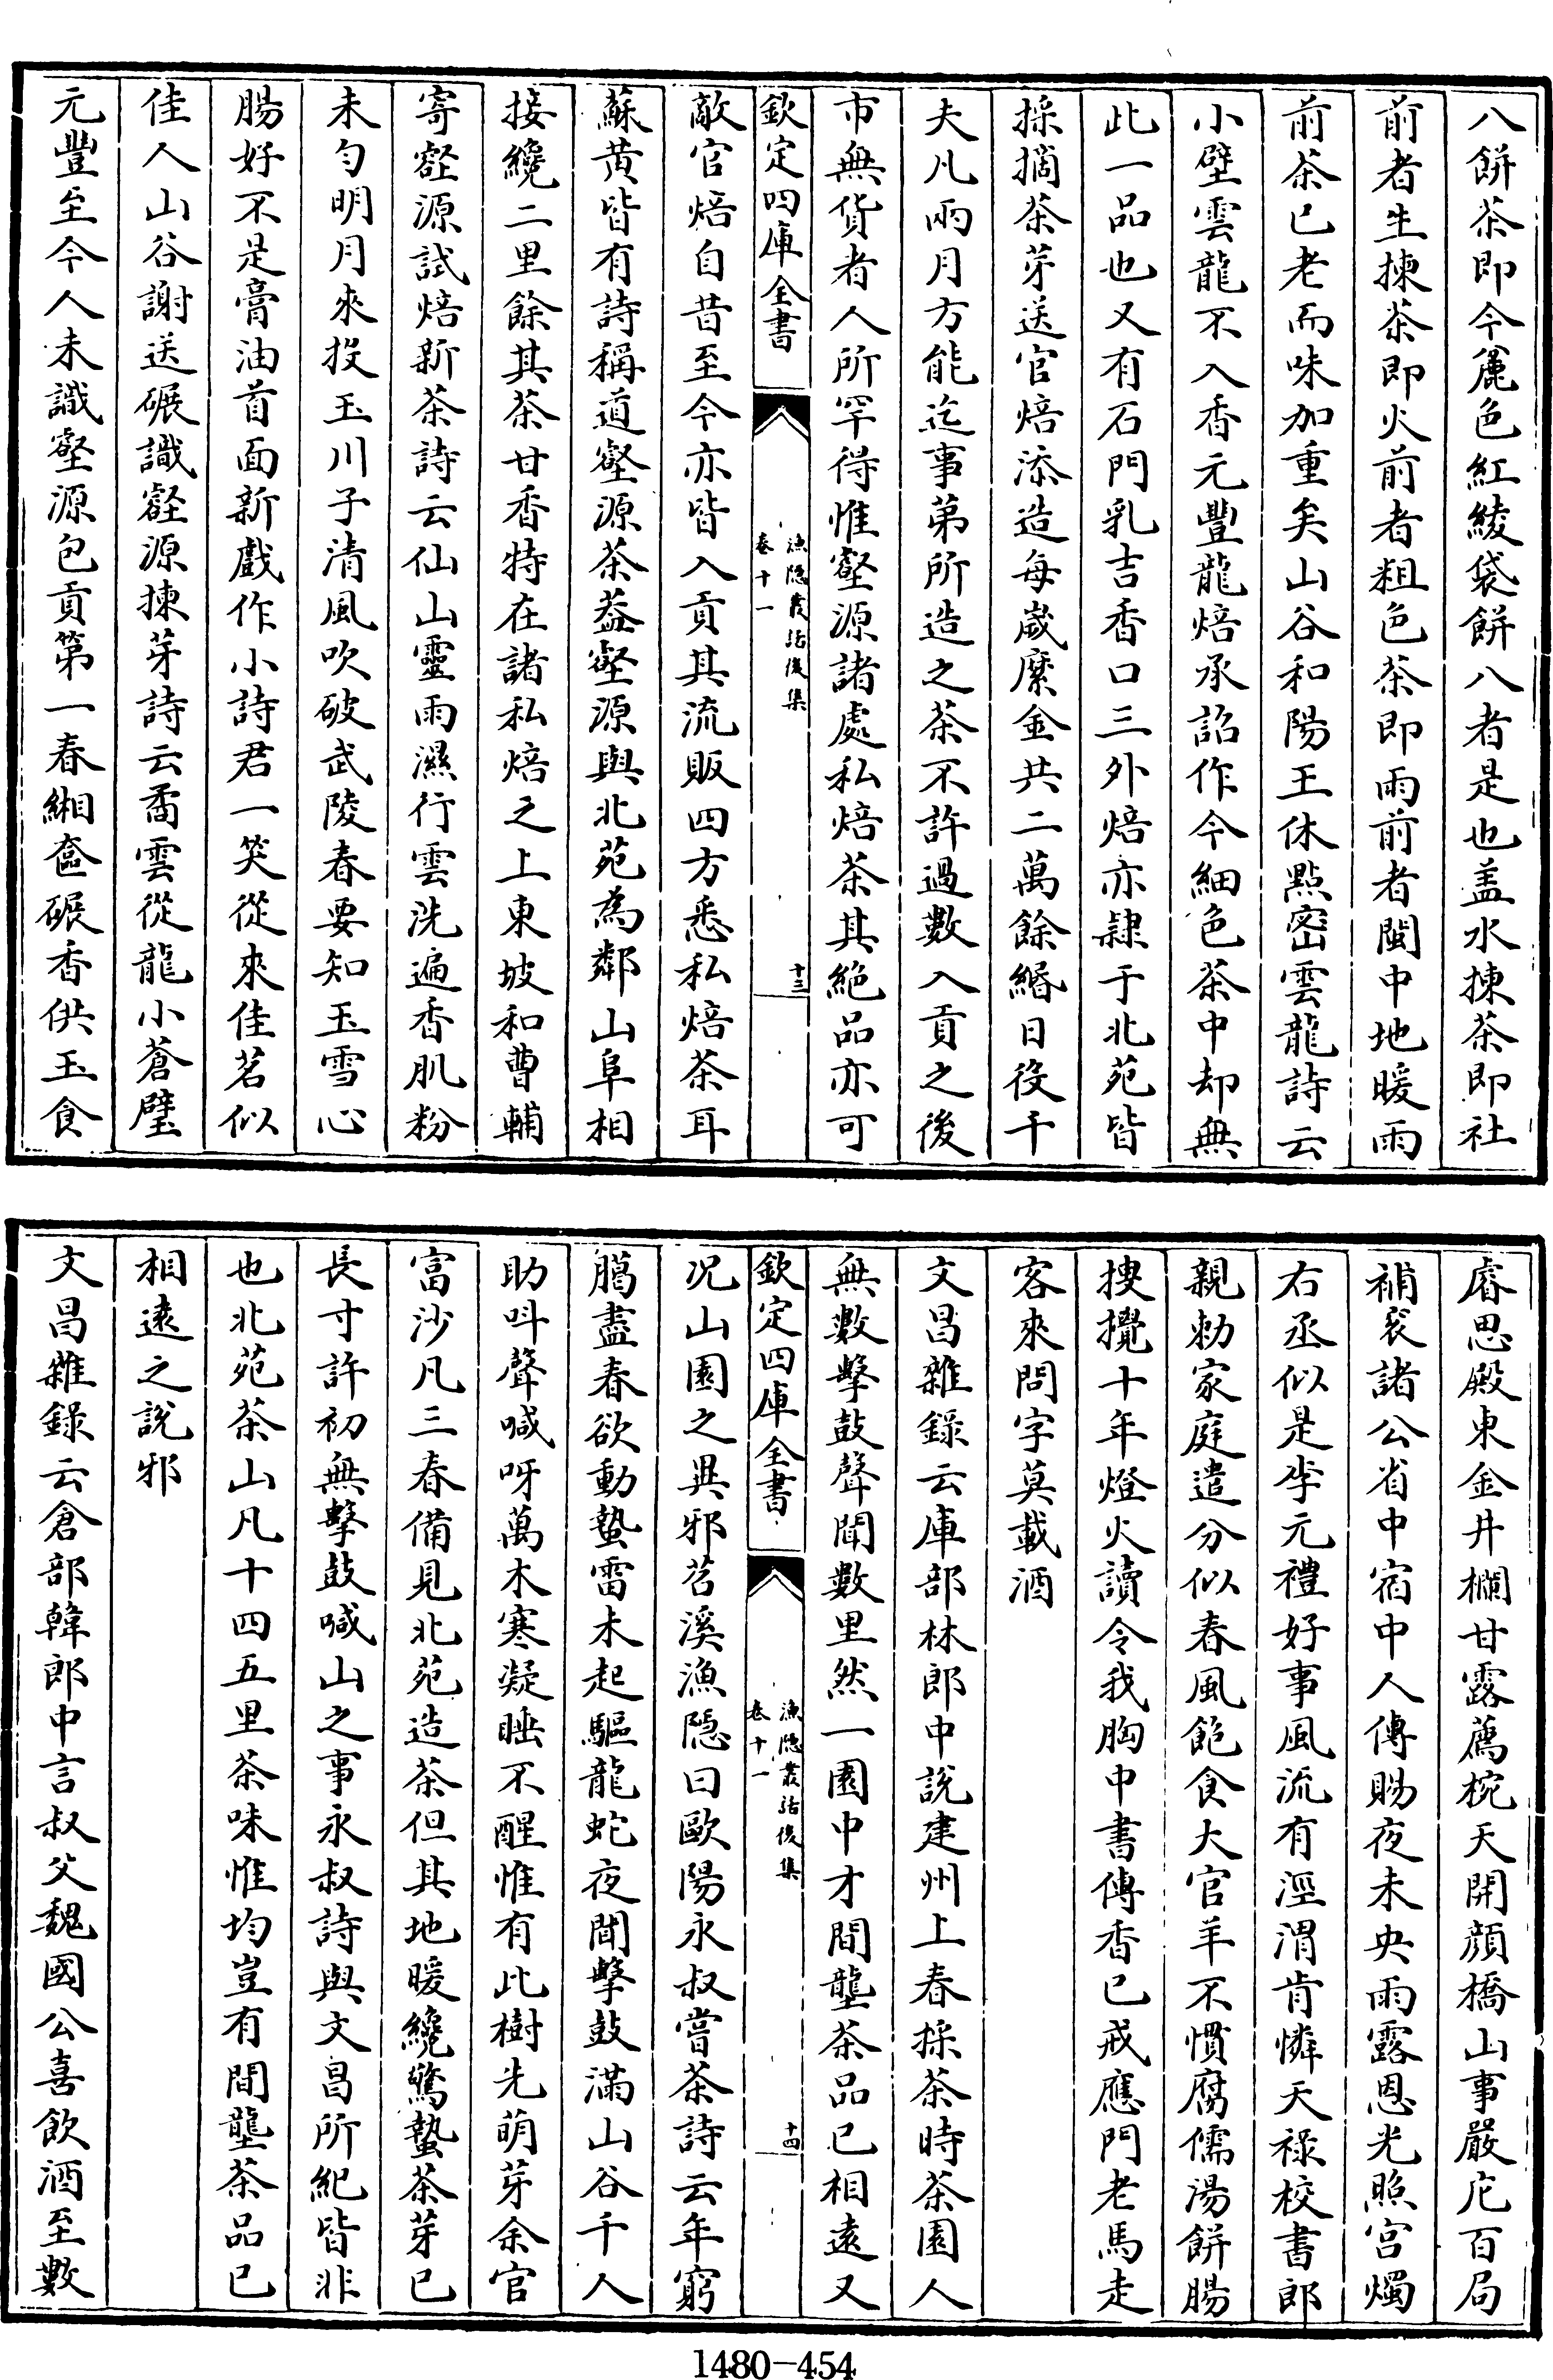 八餅茶即今麄色紅綾袋餅八者是也盖水揀茶即社
前者生揀茶即火前者粗色茶即雨前者閩中地暖雨
前茶已老而味加重矣山谷和陽王休點密雲龍詩云
小璧雲龍不入香元豐龍焙承詔作今細色茶中却無
此一品也又有石門乳吉香口三外焙亦隸于北苑皆
採摘茶芽送官焙添造每歲縻金共二萬餘緡日役千
夫凡兩月方能迄事第所造之茶不許過數入貢之後
市無貨者人所罕得惟壑源諸處私焙茶其絶品亦可
欽定四庫全書
漁隠叢話後集
卷十一
十三
敵官焙自昔至今亦皆入貢其流販四方悉私焙茶耳
蘇黄皆有詩稱道壑源茶葢壑源與北苑為鄰山阜相
接纔二里餘其茶甘香特在諸私焙之上東坡和曹輔
寄壑源試焙新茶詩云仙山靈雨濕行雲洗遍香肌粉
未勻明月來投玉川子清風吹破武陵春要知玉雪心
腸好不是膏油首面新戲作小詩君一笑從來佳茗似
佳人山谷謝送碾識壑源揀芽詩云矞雲從龍小蒼璧
元豐至今人未識壑源包貢第一春緗奩碾香供玉食
睿思殿東金井欄甘露薦椀天開顔橋山事嚴庀百局
補衮諸公省中宿中人傳賜夜未央雨露恩光照宫燭
右丞似是李元禮好事風流有涇渭肯憐天禄校書郎
親勅家庭遣分似春風飽食大官羊不慣腐儒湯餅腸
搜攪十年燈火讀令我胸中書傳香已戒應門老馬走
客來問字莫載酒
文昌雜錄云庫部林郎中説建州上春採茶時茶園人
無數擊鼓聲聞數里然一園中才間壟茶品已相遠又
欽定四庫全書
漁隠叢話後集
卷十一
十四
况山園之異邪苕溪漁隠曰歐陽永叔嘗茶詩云年窮
臈盡春欲動蟄雷未起驅龍蛇夜聞擊鼓滿山谷千人
助呌聲喊呀萬木寒凝睡不醒惟有此樹先萌芽余官
富沙凡三春備見北苑造茶但其地暖纔驚蟄茶芽已
長寸許初無擊鼓喊山之事永叔詩與文昌所紀皆非
也北苑茶山凡十四五里茶味惟均豈有間壟茶品已
相遠之説邪
文昌雜錄云倉部韓郎中言叔父魏國公喜飲酒至數
1480-454